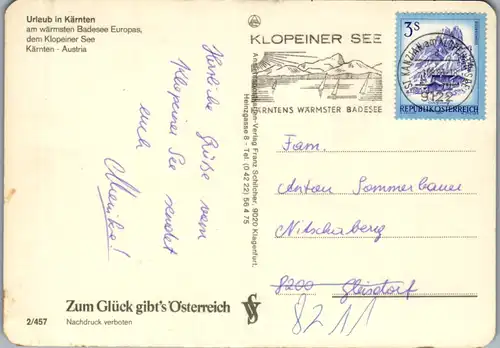 Urlaub in Kärnten
am wärmsten Badesee Europas,
dem Klopeiner See
Kärnten - Austria
Herzliche Grüße vom
Klopeiner See sendet
euch
Monika!
Zum Glück gibt's Österreich
2/457
Nachdruck verboten
Ansichtskarten-Verlag Franz Schilcher, 9020 Klagenfurt,
Heinzgasse 8 - Tel. (0 42 22) 56 4 75
KLOPEINER SEE
KÄRNTENS WÄRMSTER BADESEE
3 S
REPUBLIK ÖSTERREICH
9122
Fam.
Anton Sommerbauer
Nitschaberg
8200 Gleisdorf
8211